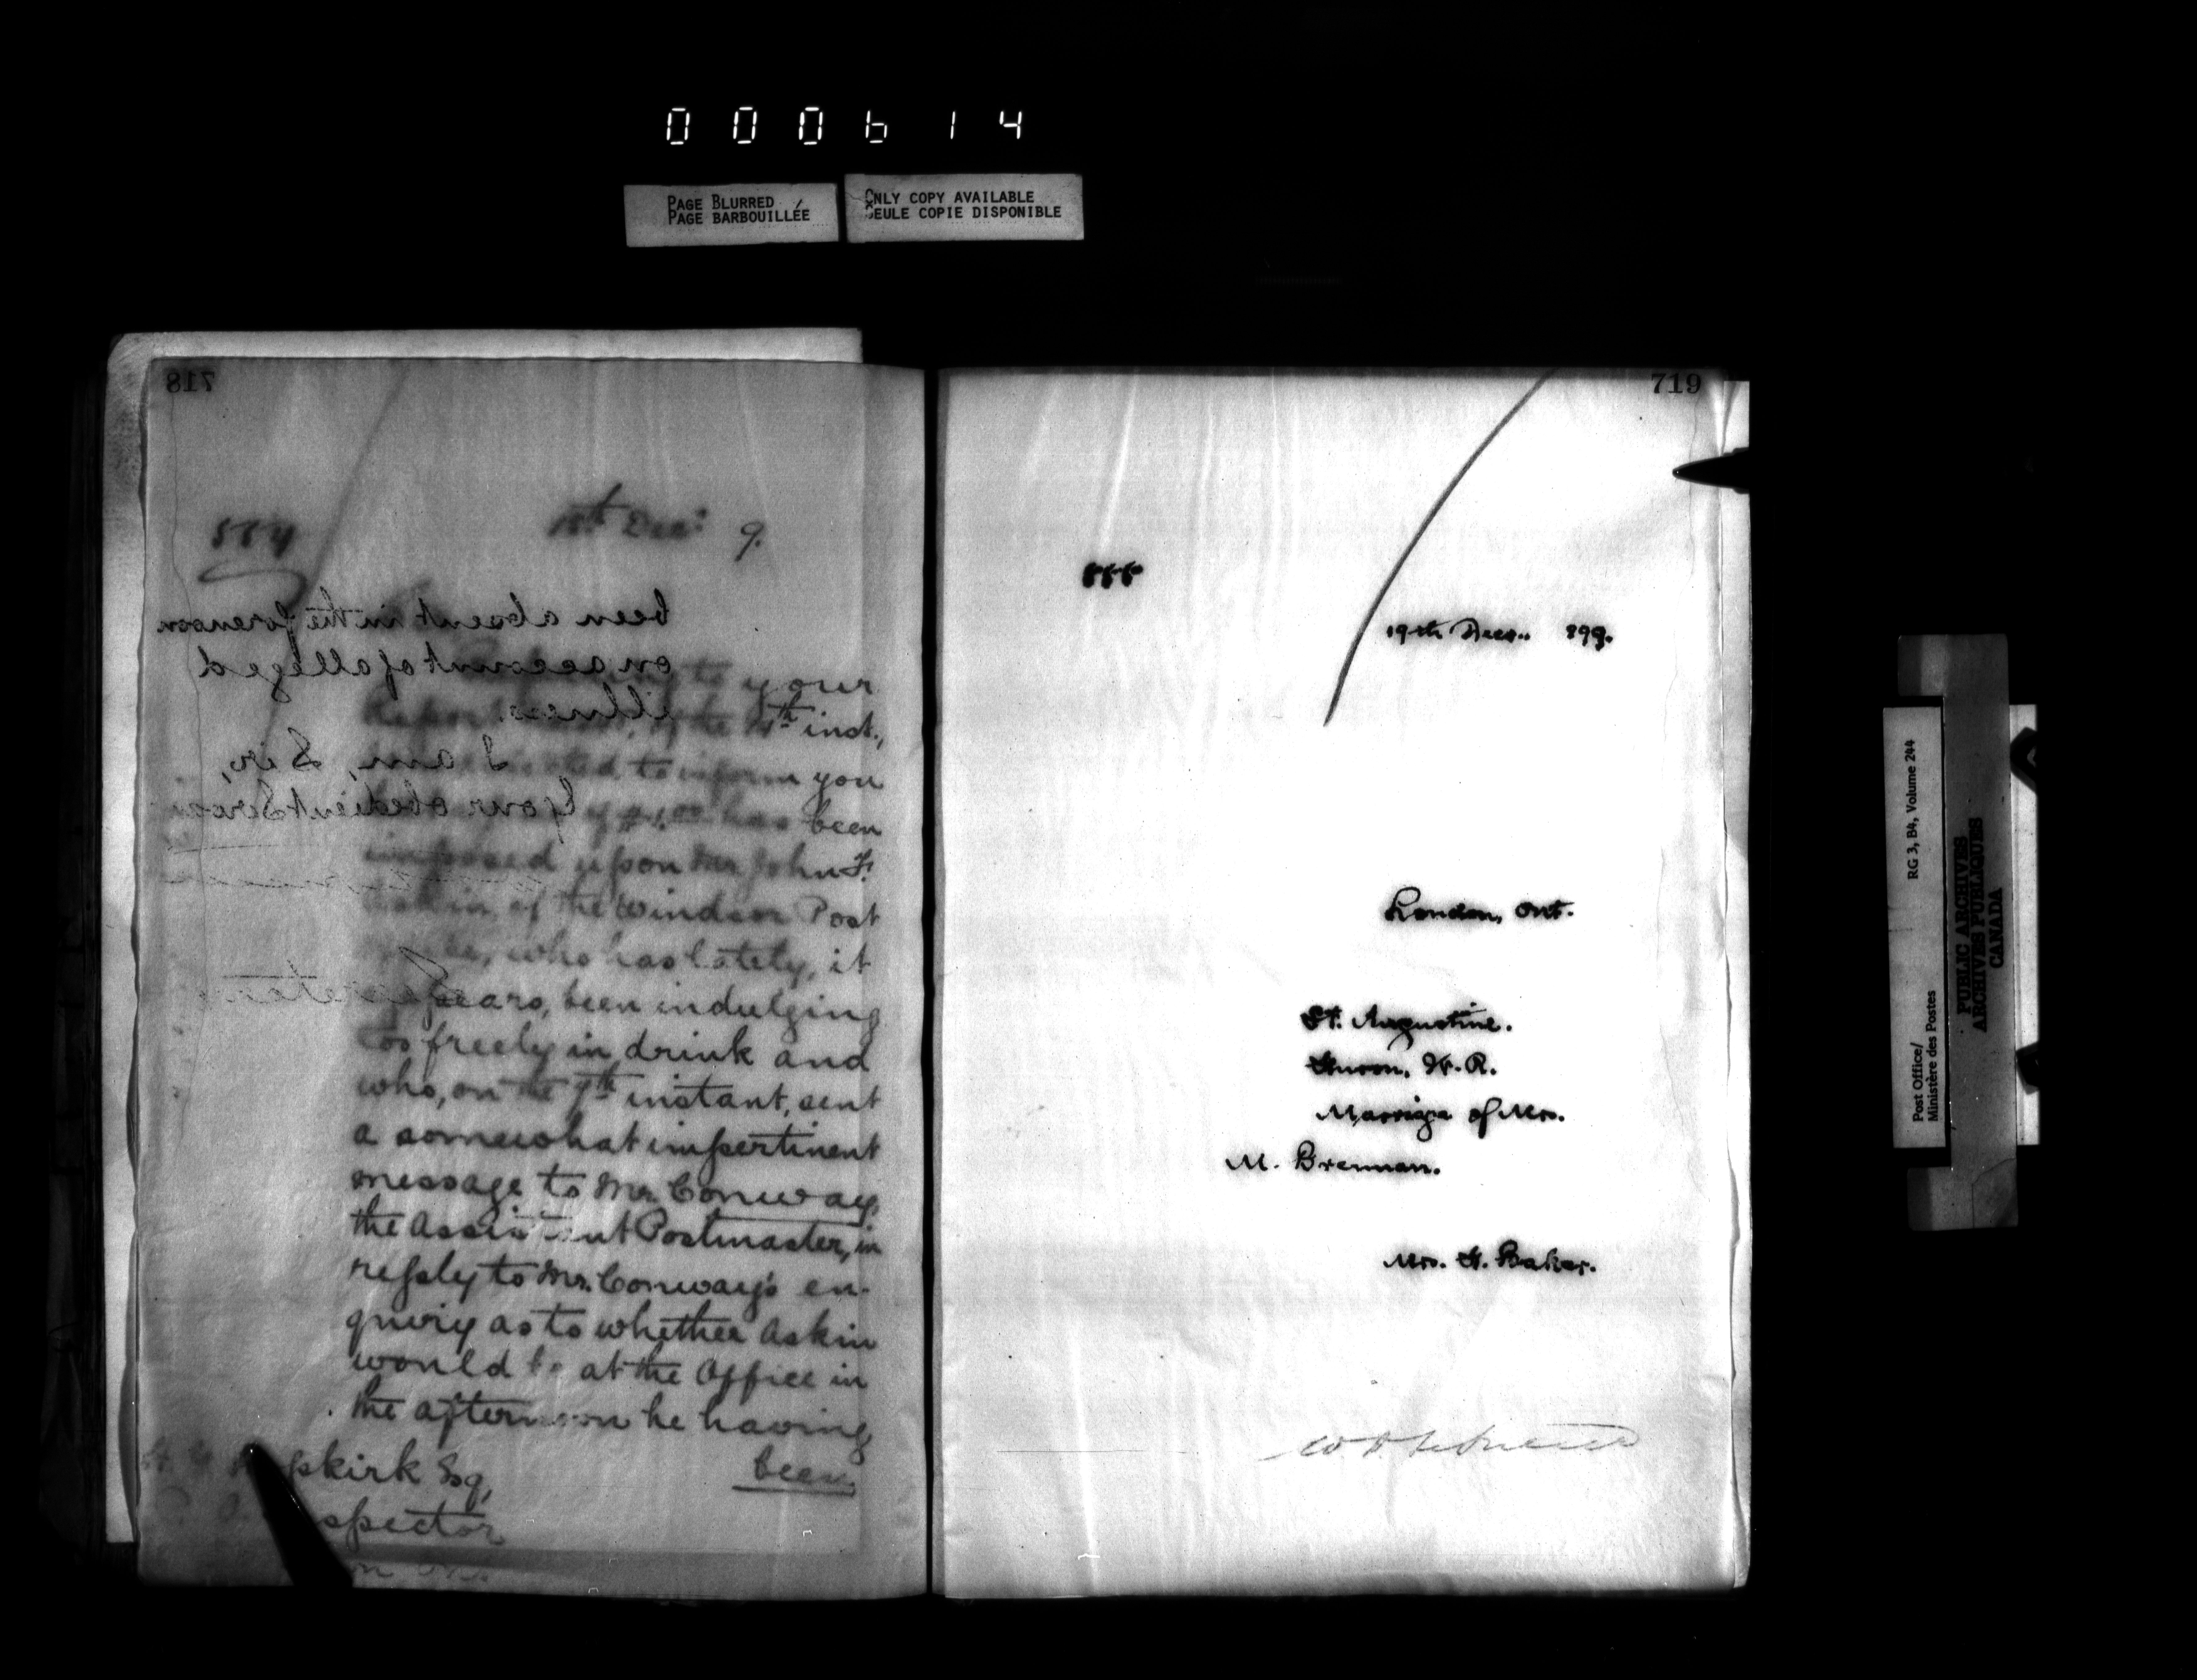 000614
PAGE BLURRED
PAGE BARBOUILLÉE
ONLY COPY AVAILABLE
SEULE COPIE DISPONIBLE
718
554
18th Decr 9.
to your
Report of the 14th inst.,
to inform you
of $1.00 has been
imposed upon Mr. John F.
Askin, of the Windsor Post
who has lately, it
appears, been indulging
too freely in drink and
who, on the 9th instant, sent
a somewhat impertinent
message to Mr. Conway,
the Assistant Postmaster, in
reply to Mr. Conway's en-
quiry as to whether Askin
would be at the Office in
the afternoon he having
been
pkirk Esq,
spector
been absent in the forenoon
on account of alleged
illness.
I am, Sir,
Your obedient Servant
Secretary
719
555
19th Decr. 899.
London, Ont.
St. Augustine.
Huron, W.R.
Marriage of Mrs.
M. Brennan.
Mrs. F. Baker.
RG 3, B4, Volume 244
Post Office/
Ministère des Postes
PUBLIC ARCHIVES
ARCHIVES PUBLIQUES
CANADA